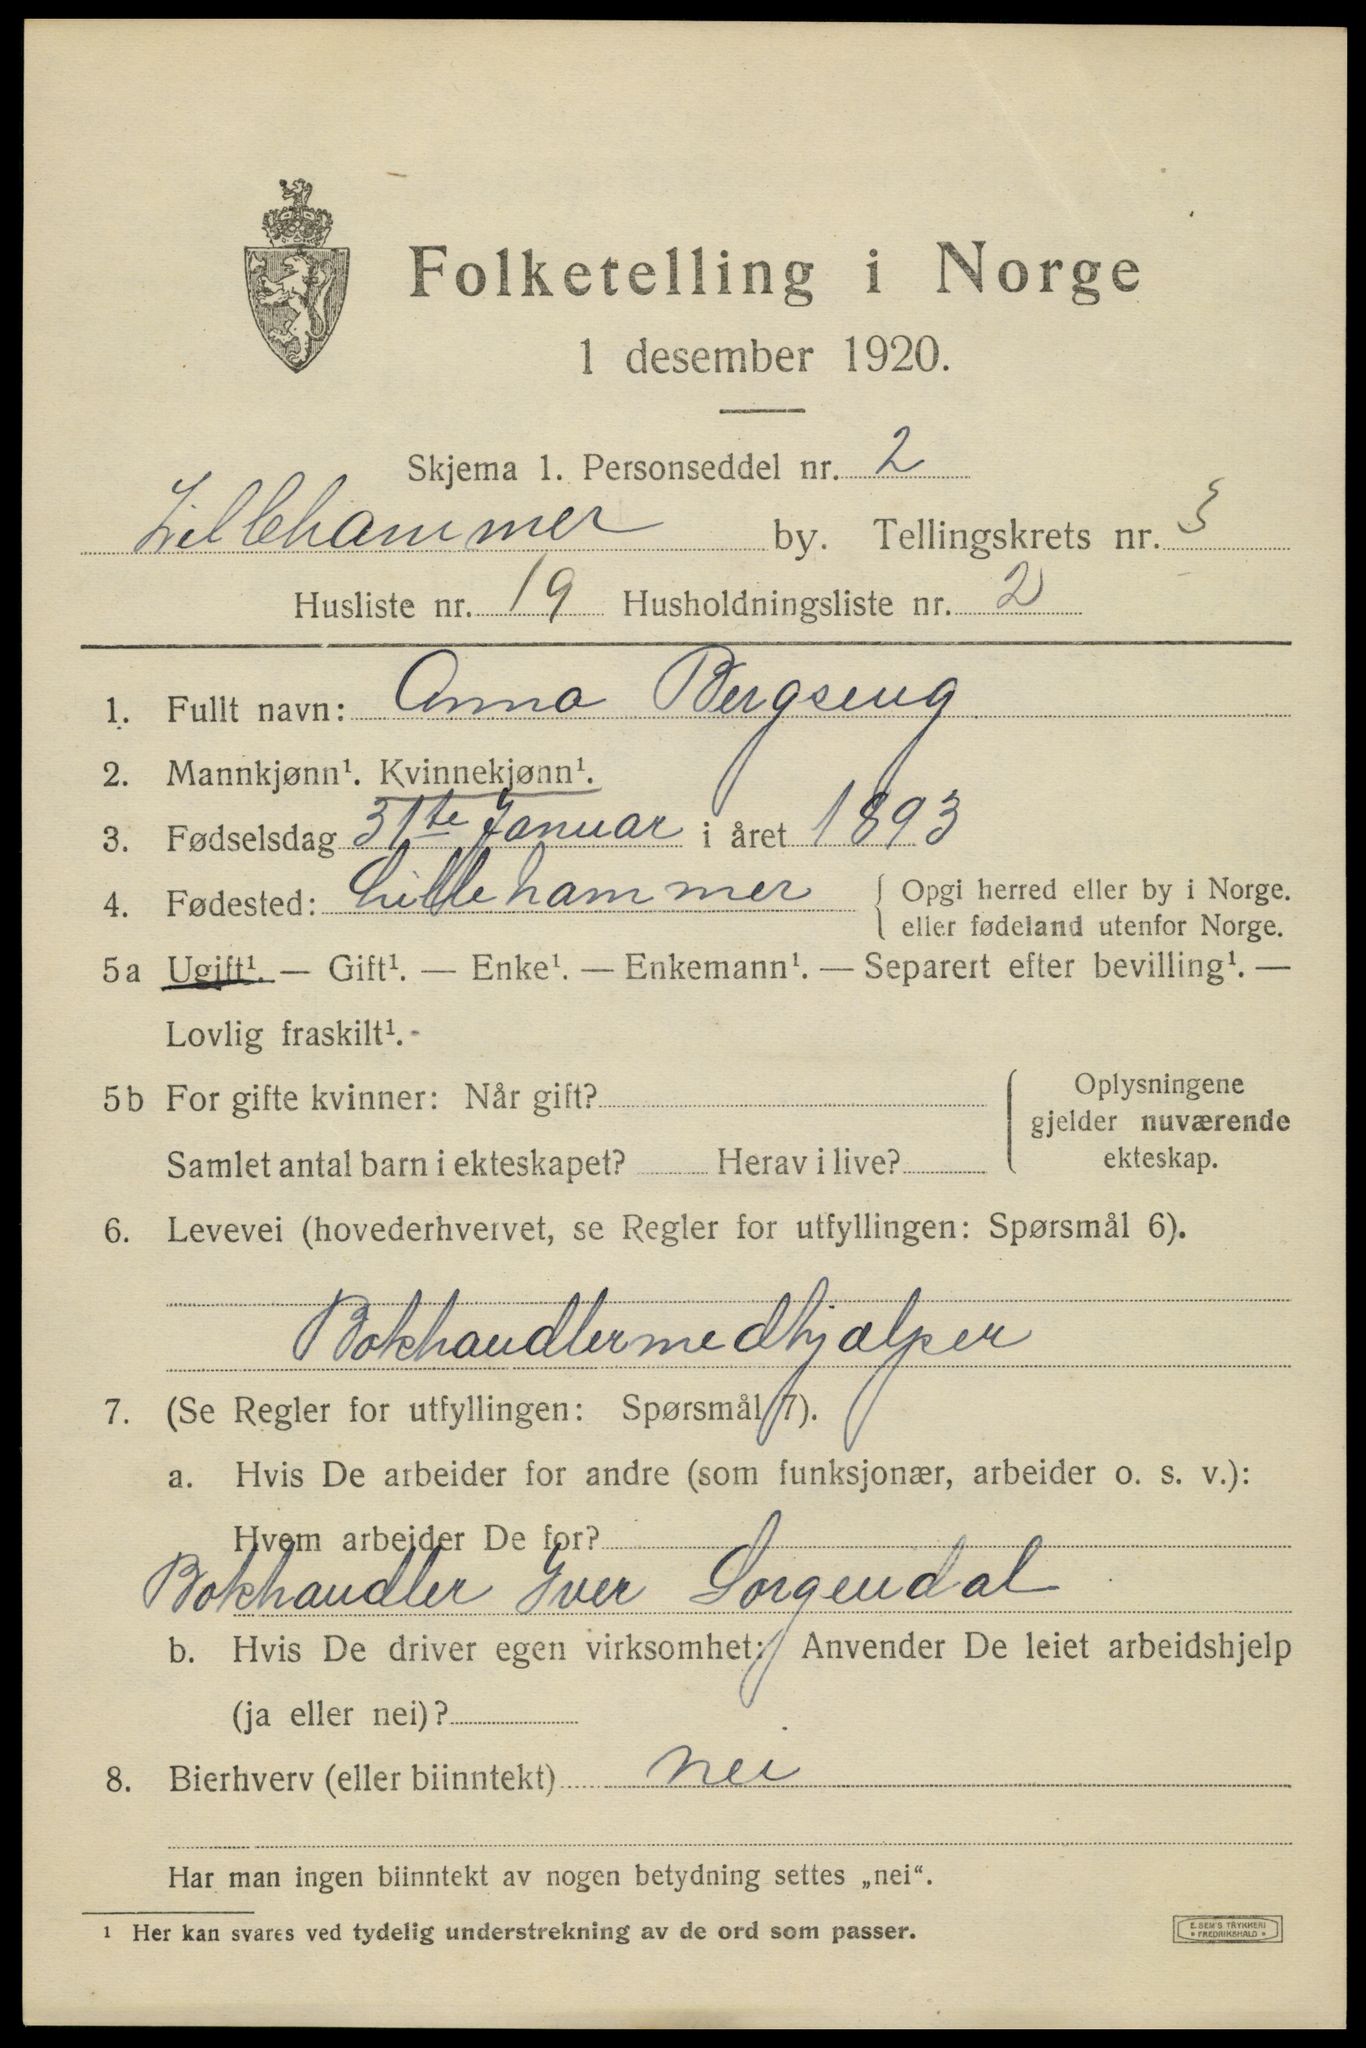 Folketelling i Norge
1 desember 1920.
Skjema 1. Personseddel nr. 2
Lillehammer by. Tellingskrets nr. 3
Husliste nr. 19 Husholdningsliste nr. 2
1. Fullt navn: Anna Bergseng
2. Mannkjønn¹. Kvinnekjønn¹.
3. Fødselsdag 31te Januar i året 1893
4. Fødested: Lillehammer { Opgi herred eller by i Norge.
eller fødeland utenfor Norge.
5a Ugift¹. — Gift¹. — Enke¹. — Enkemann¹. — Separert efter bevilling¹. —
Lovlig fraskilt¹.
5b For gifte kvinner: Når gift?
Samlet antal barn i ekteskapet? Herav i live?
Oplysningene
gjelder nuværende
ekteskap.
6. Levevei (hovederhvervet, se Regler for utfyllingen: Spørsmål 6).
Bokhandlermedhjælper
7. (Se Regler for utfyllingen: Spørsmål 7).
a. Hvis De arbeider for andre (som funksjonær, arbeider o. s. v.):
Hvem arbeider De for?
Bokhandler Iver Sorgendal
b. Hvis De driver egen virksomhet: Anvender De leiet arbeidshjelp
(ja eller nei)?
8. Bierhverv (eller biinntekt) nei
Har man ingen biinntekt av nogen betydning settes „nei“.
¹ Her kan svares ved tydelig understrekning av de ord som passer.
E. SEM'S TRYKKERI
* FREDRIKSHALD *